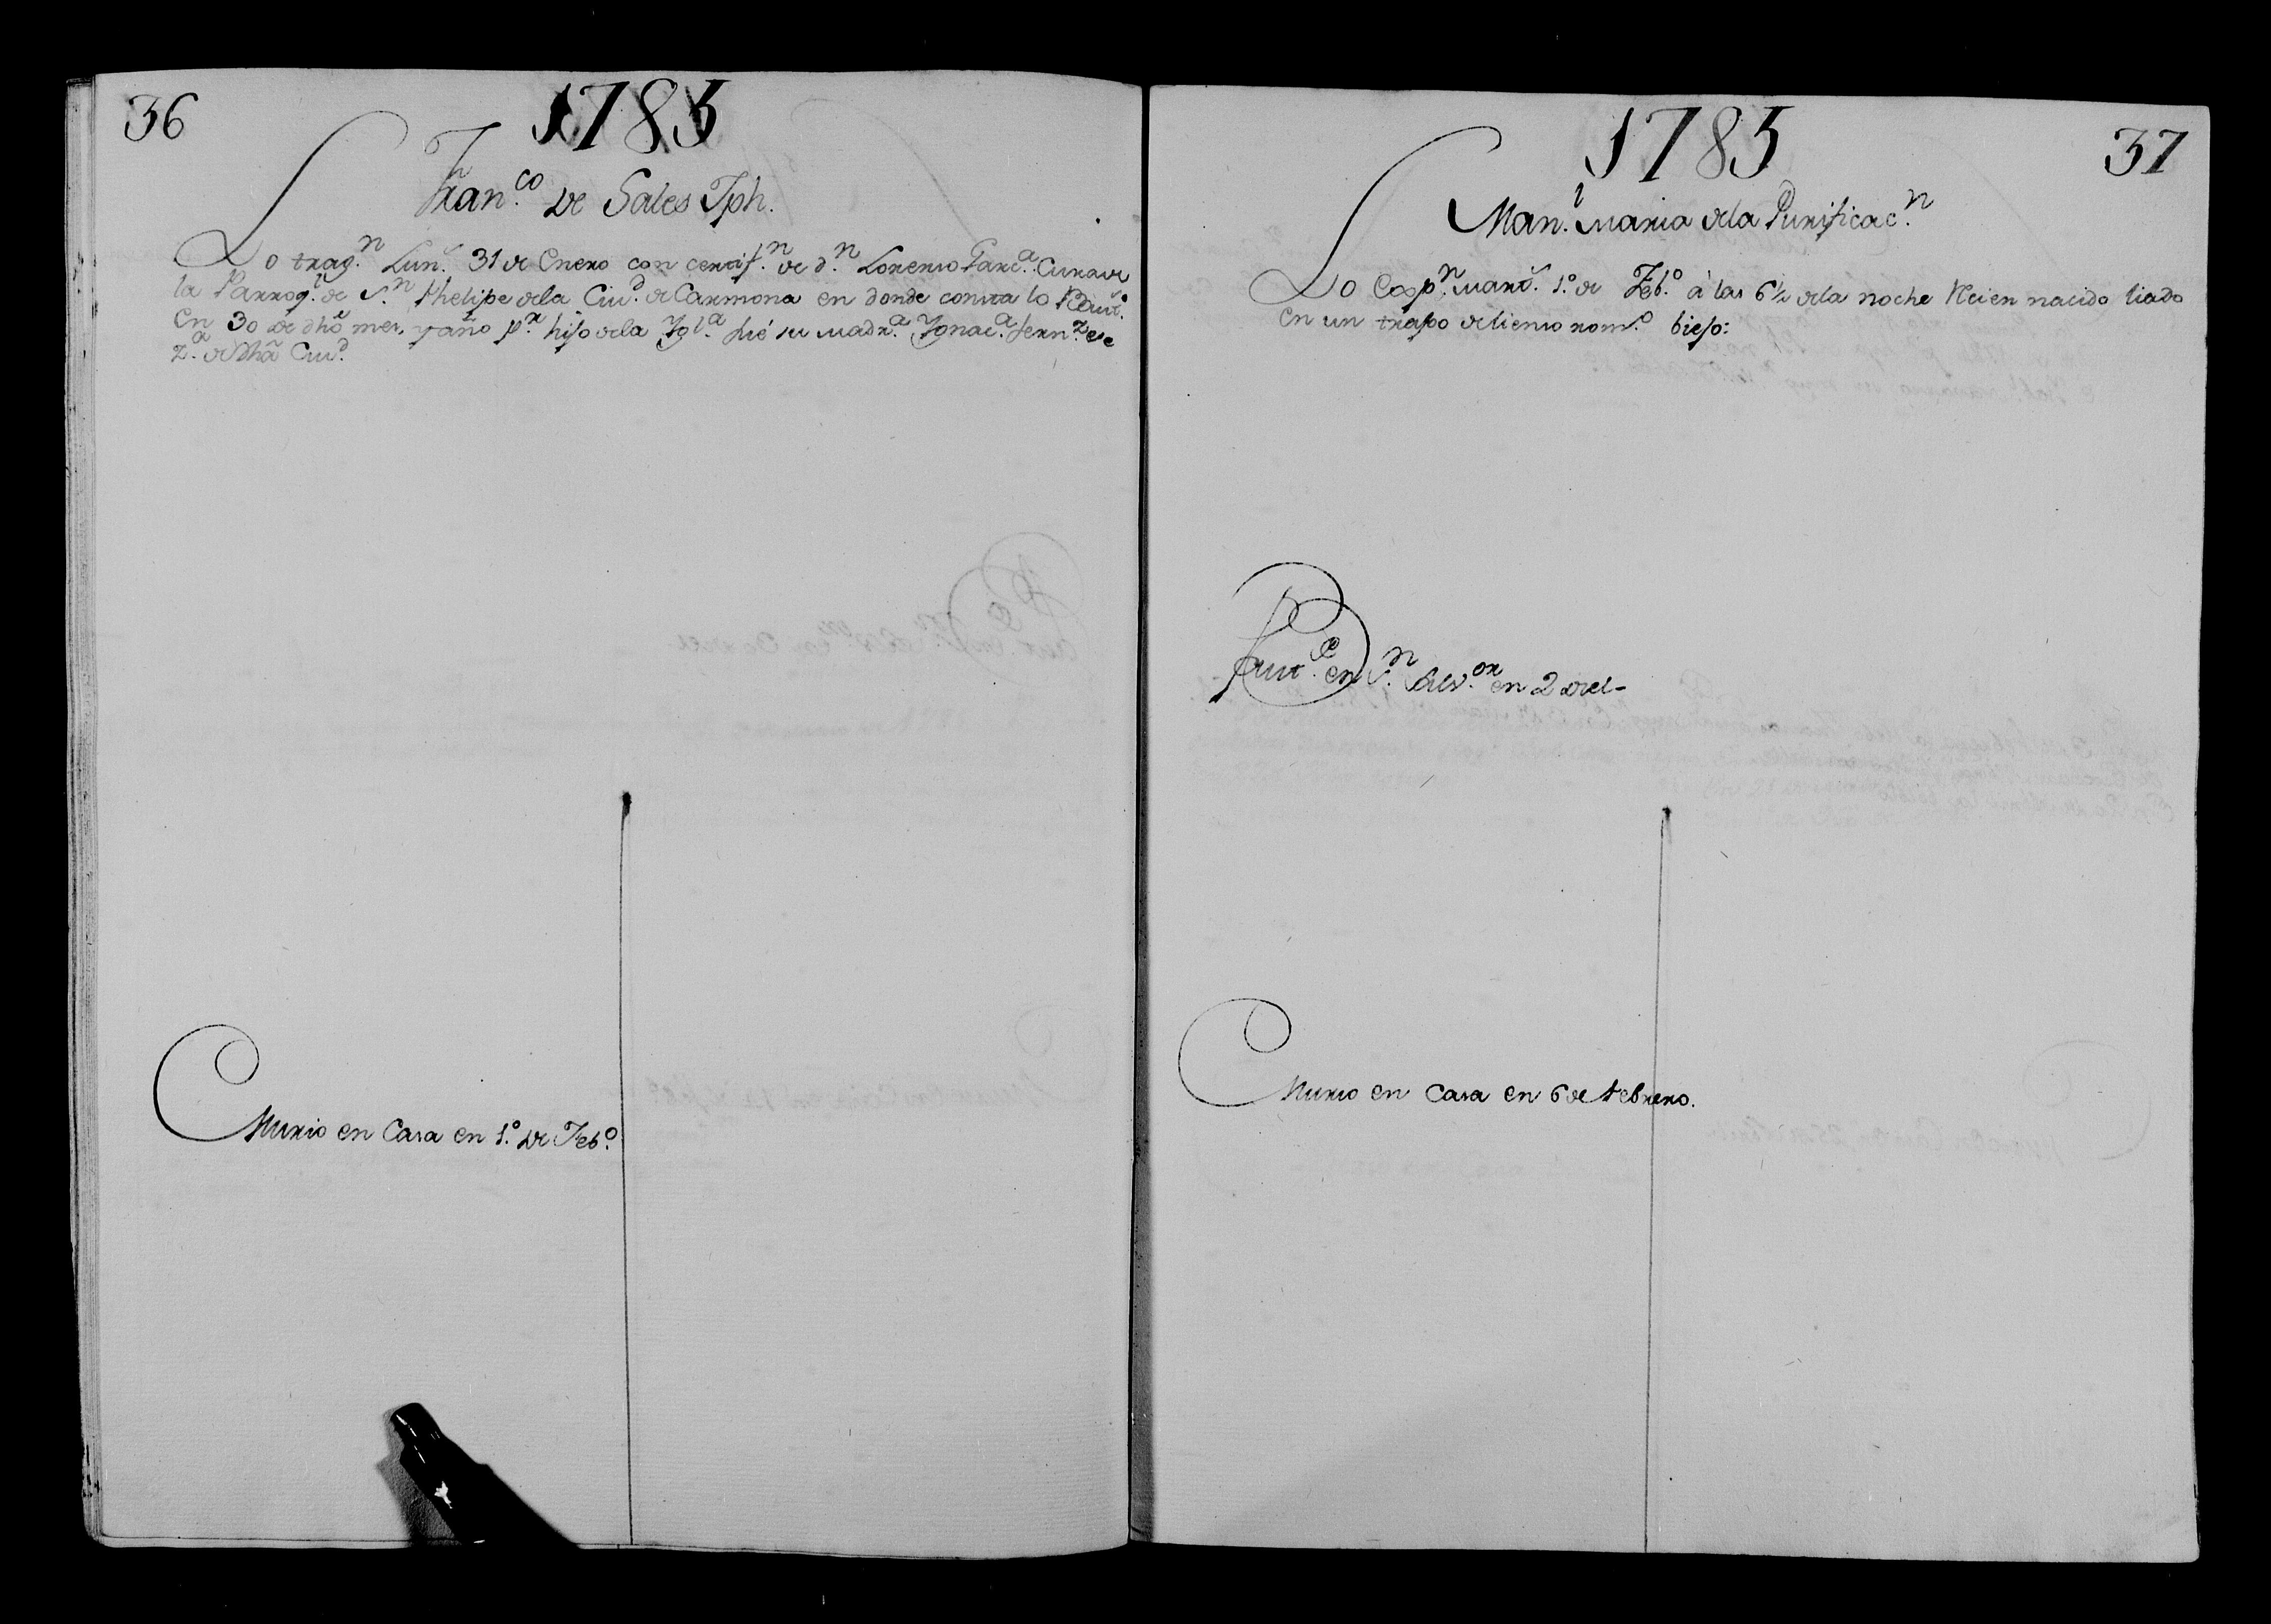 36
1785
Fran.co de Sales Jph.
Lo trag.n Lun.s 31 de Enero con certif.n de d.n Lorenso Garc.a Cura de
la Parroq.l de S.n Phelipe dela Ciu.d de Carmona en donde consta lo Baut.o
en 30 de dho mes, y año p.r hijo dela Igl.a fué su Madr.a Ignac.a Fern.z
z.a de dha Ciu.d
Murio en Casa en 1.o de Feb.o
1785
37
Man.l Maria dela Purificac.n
Lo Exp.n Mart.s 1.o de Feb.o à las 6½ dela noche Recien nacido liado
en un trapo de lienso rom.o biejo:
Baut.e en S.n Salv.or en 2 del-
Murio en Casa en 6 de Febrero.